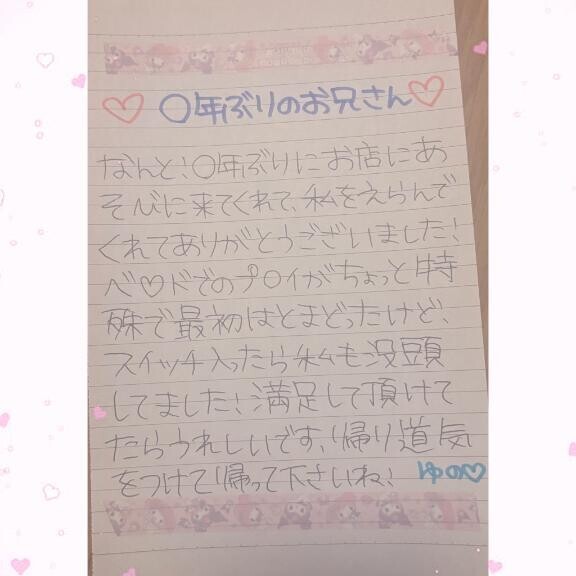 ♡ ○年ぶりのお兄さん♡
なんと!○年ぶりにお店にあ
そびに来てくれて、私をえらんで
くれてありがとうございました!
ベ♡ドでのプ○イがちょっと特
殊で最初はとまどったけど、
スイッチ入ったら私も没頭
してました!満足して頂けて
たらうれしいです、!帰り道気
をつけて帰って下さいね、 ゆの♡